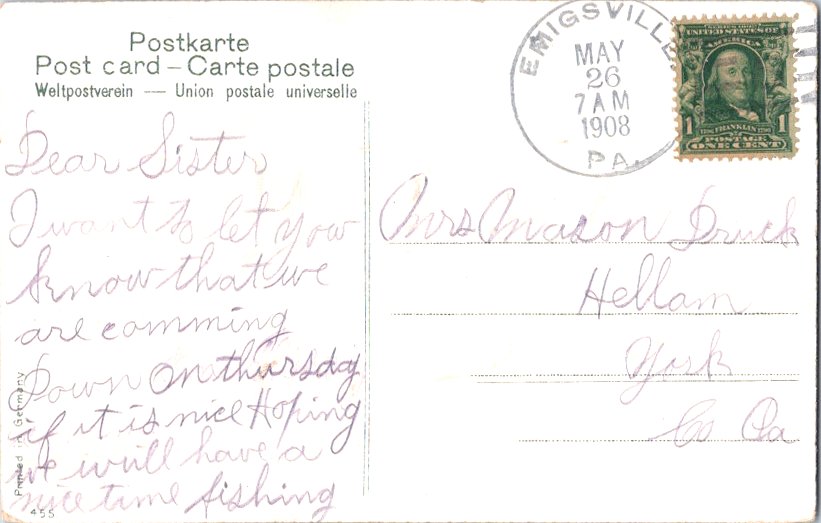 Postkarte
Post card – Carte postale
Weltpostverein — Union postale universelle
EMIGSVILLE,
MAY
26
7 AM
1908
PA.
SERIES 1902
UNITED STATES OF
AMERICA
1 FRANKLIN 1
POSTAGE
ONE CENT
Dear Sister
I want to let you
know that we
are comming
Down on thursday
if it is nice Hoping
we will have a
nice time fishing
Mrs Mason Druck
Hellam
York
Co Pa
Printed in Germany
455